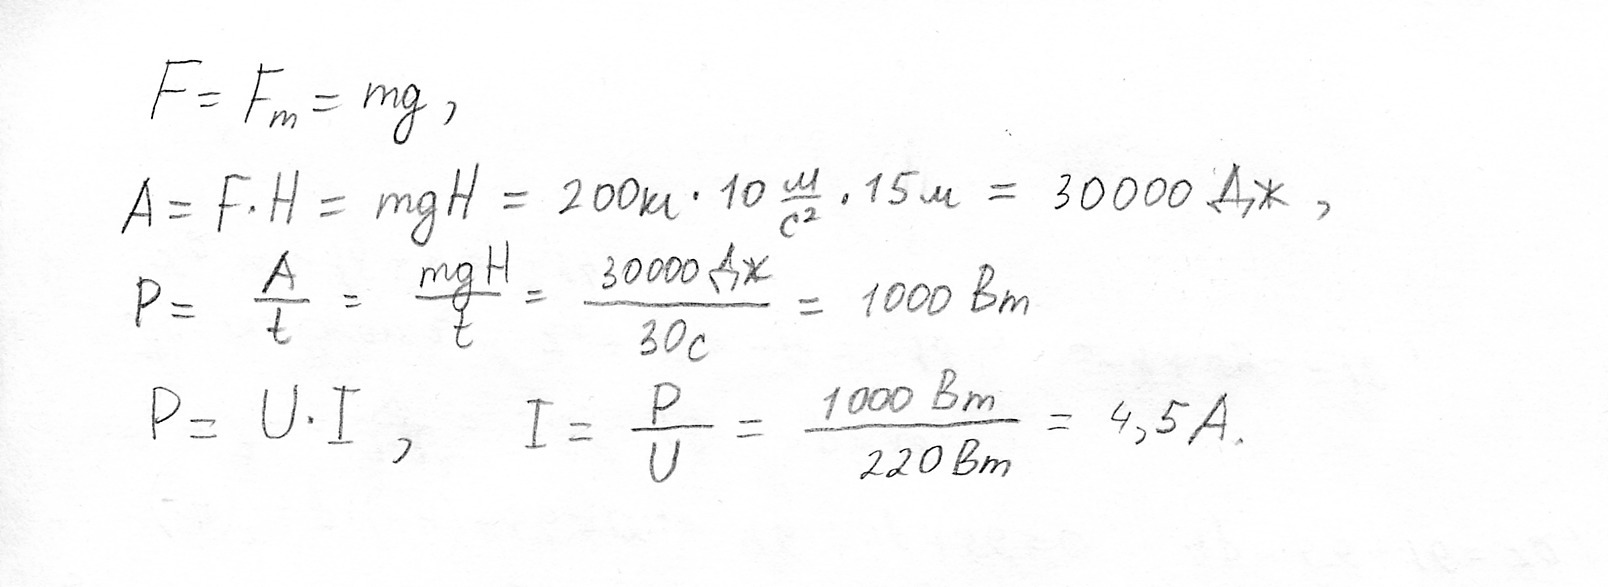 F = Fт = mg,
A = F·H = mgH = 200кг · 10 м/с² · 15м = 30000 Дж,
P = A/t = mgH/t = 30000 Дж/30с = 1000 Вт
P = U·I, I = P/U = 1000 Вт/220 Вт = 4,5 А.